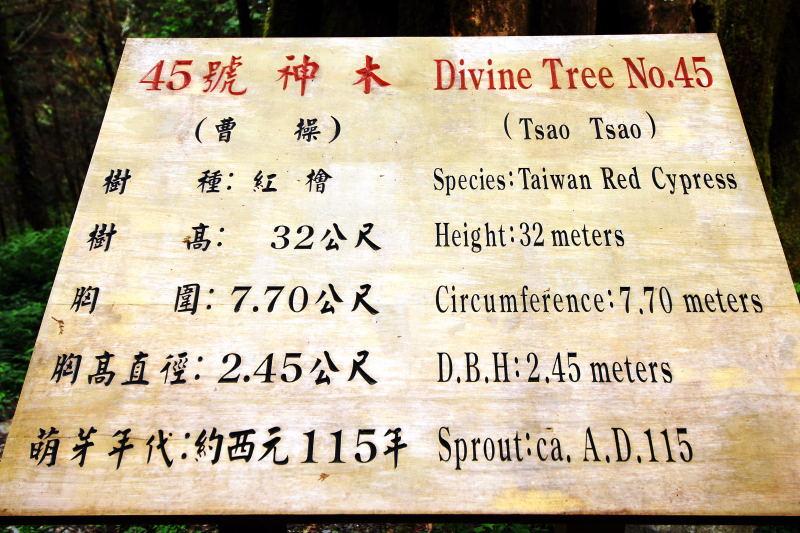 45號 神 木 Divine Tree No.45
(曹 操) (Tsao Tsao)
樹 種: 紅 檜 Species:Taiwan Red Cypress
樹 高: 32公尺 Height:32 meters
胸 圍: 7.70公尺 Circumference:7.70 meters
胸高直徑: 2.45公尺 D.B.H:2.45 meters
萌芽年代:約西元115年 Sprout:ca. A.D.115